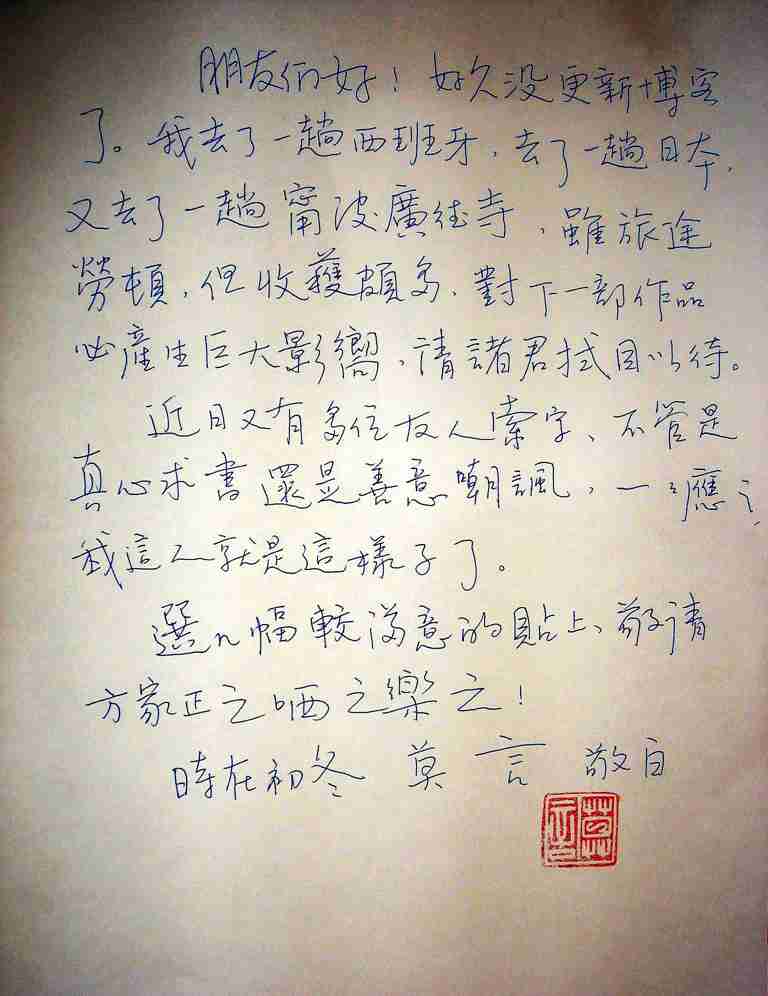 朋友们好！好久没更新博客
了。我去了一趟西班牙，去了一趟日本，
又去了一趟甯波廣德寺，雖旅途
勞頓，但收獲頗多，對下一部作品
必產生巨大影嚮，請諸君拭目以待。
近日又有多位友人索字、不管是
真心求書還是善意嘲諷，一々應之
我這人就是這樣子了。
選几幅較滿意的貼上、敬请
方家正之哂之樂之！
時在初冬 莫言 敬白
莫言